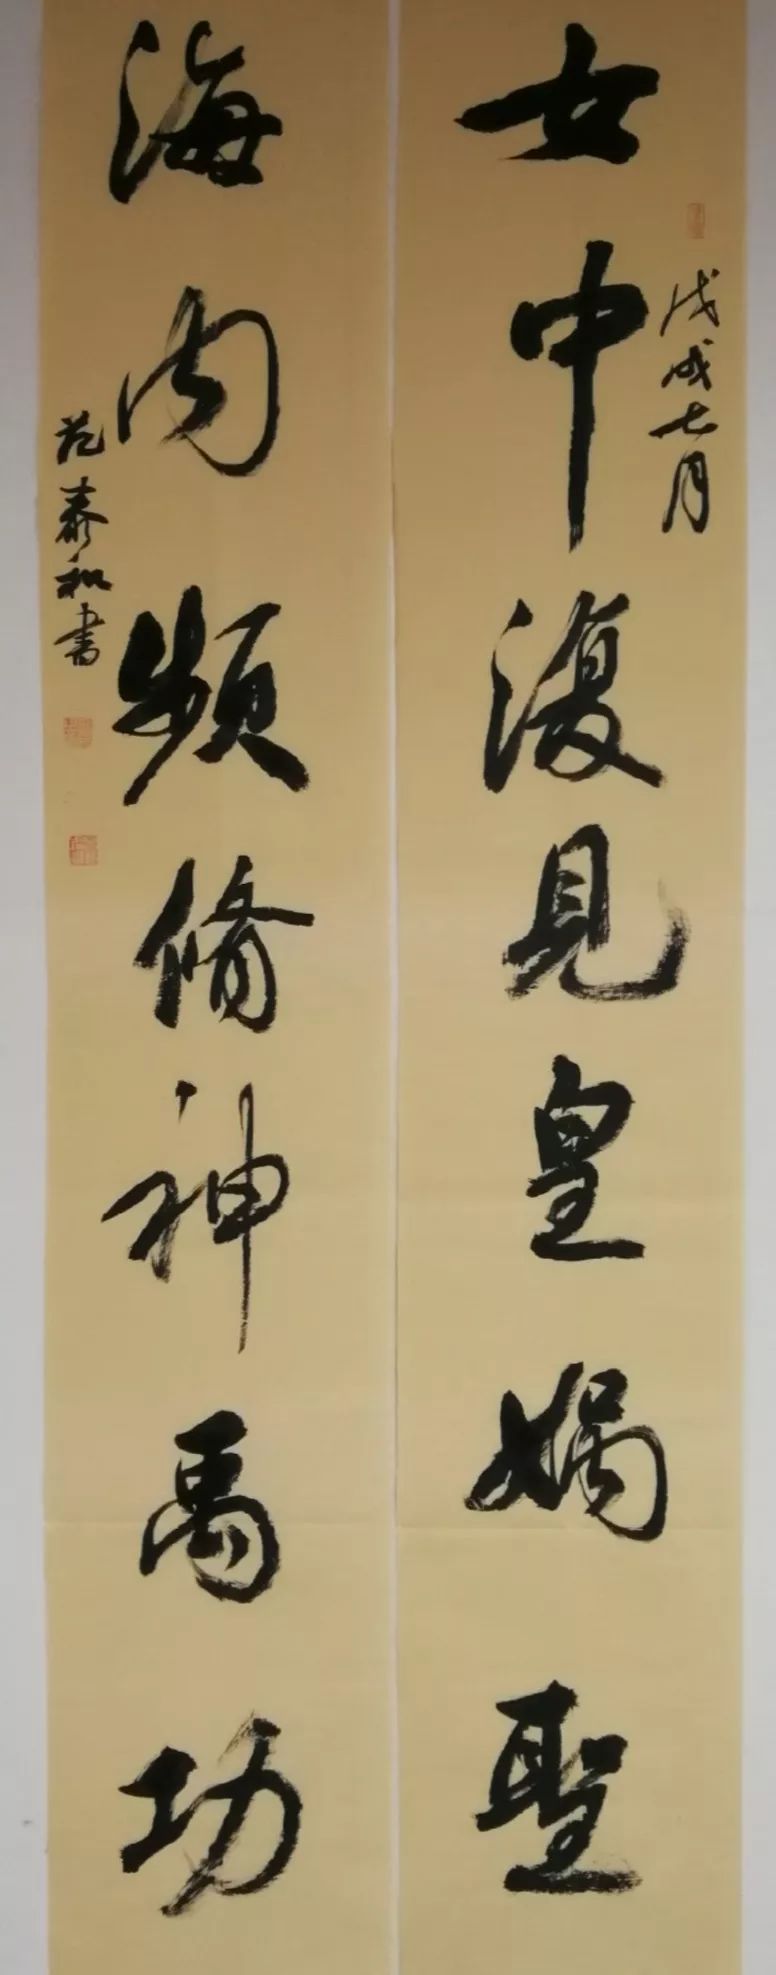 戊戌七月
女中復見皇媧聖
海内頻脩神禹功
范泰和書